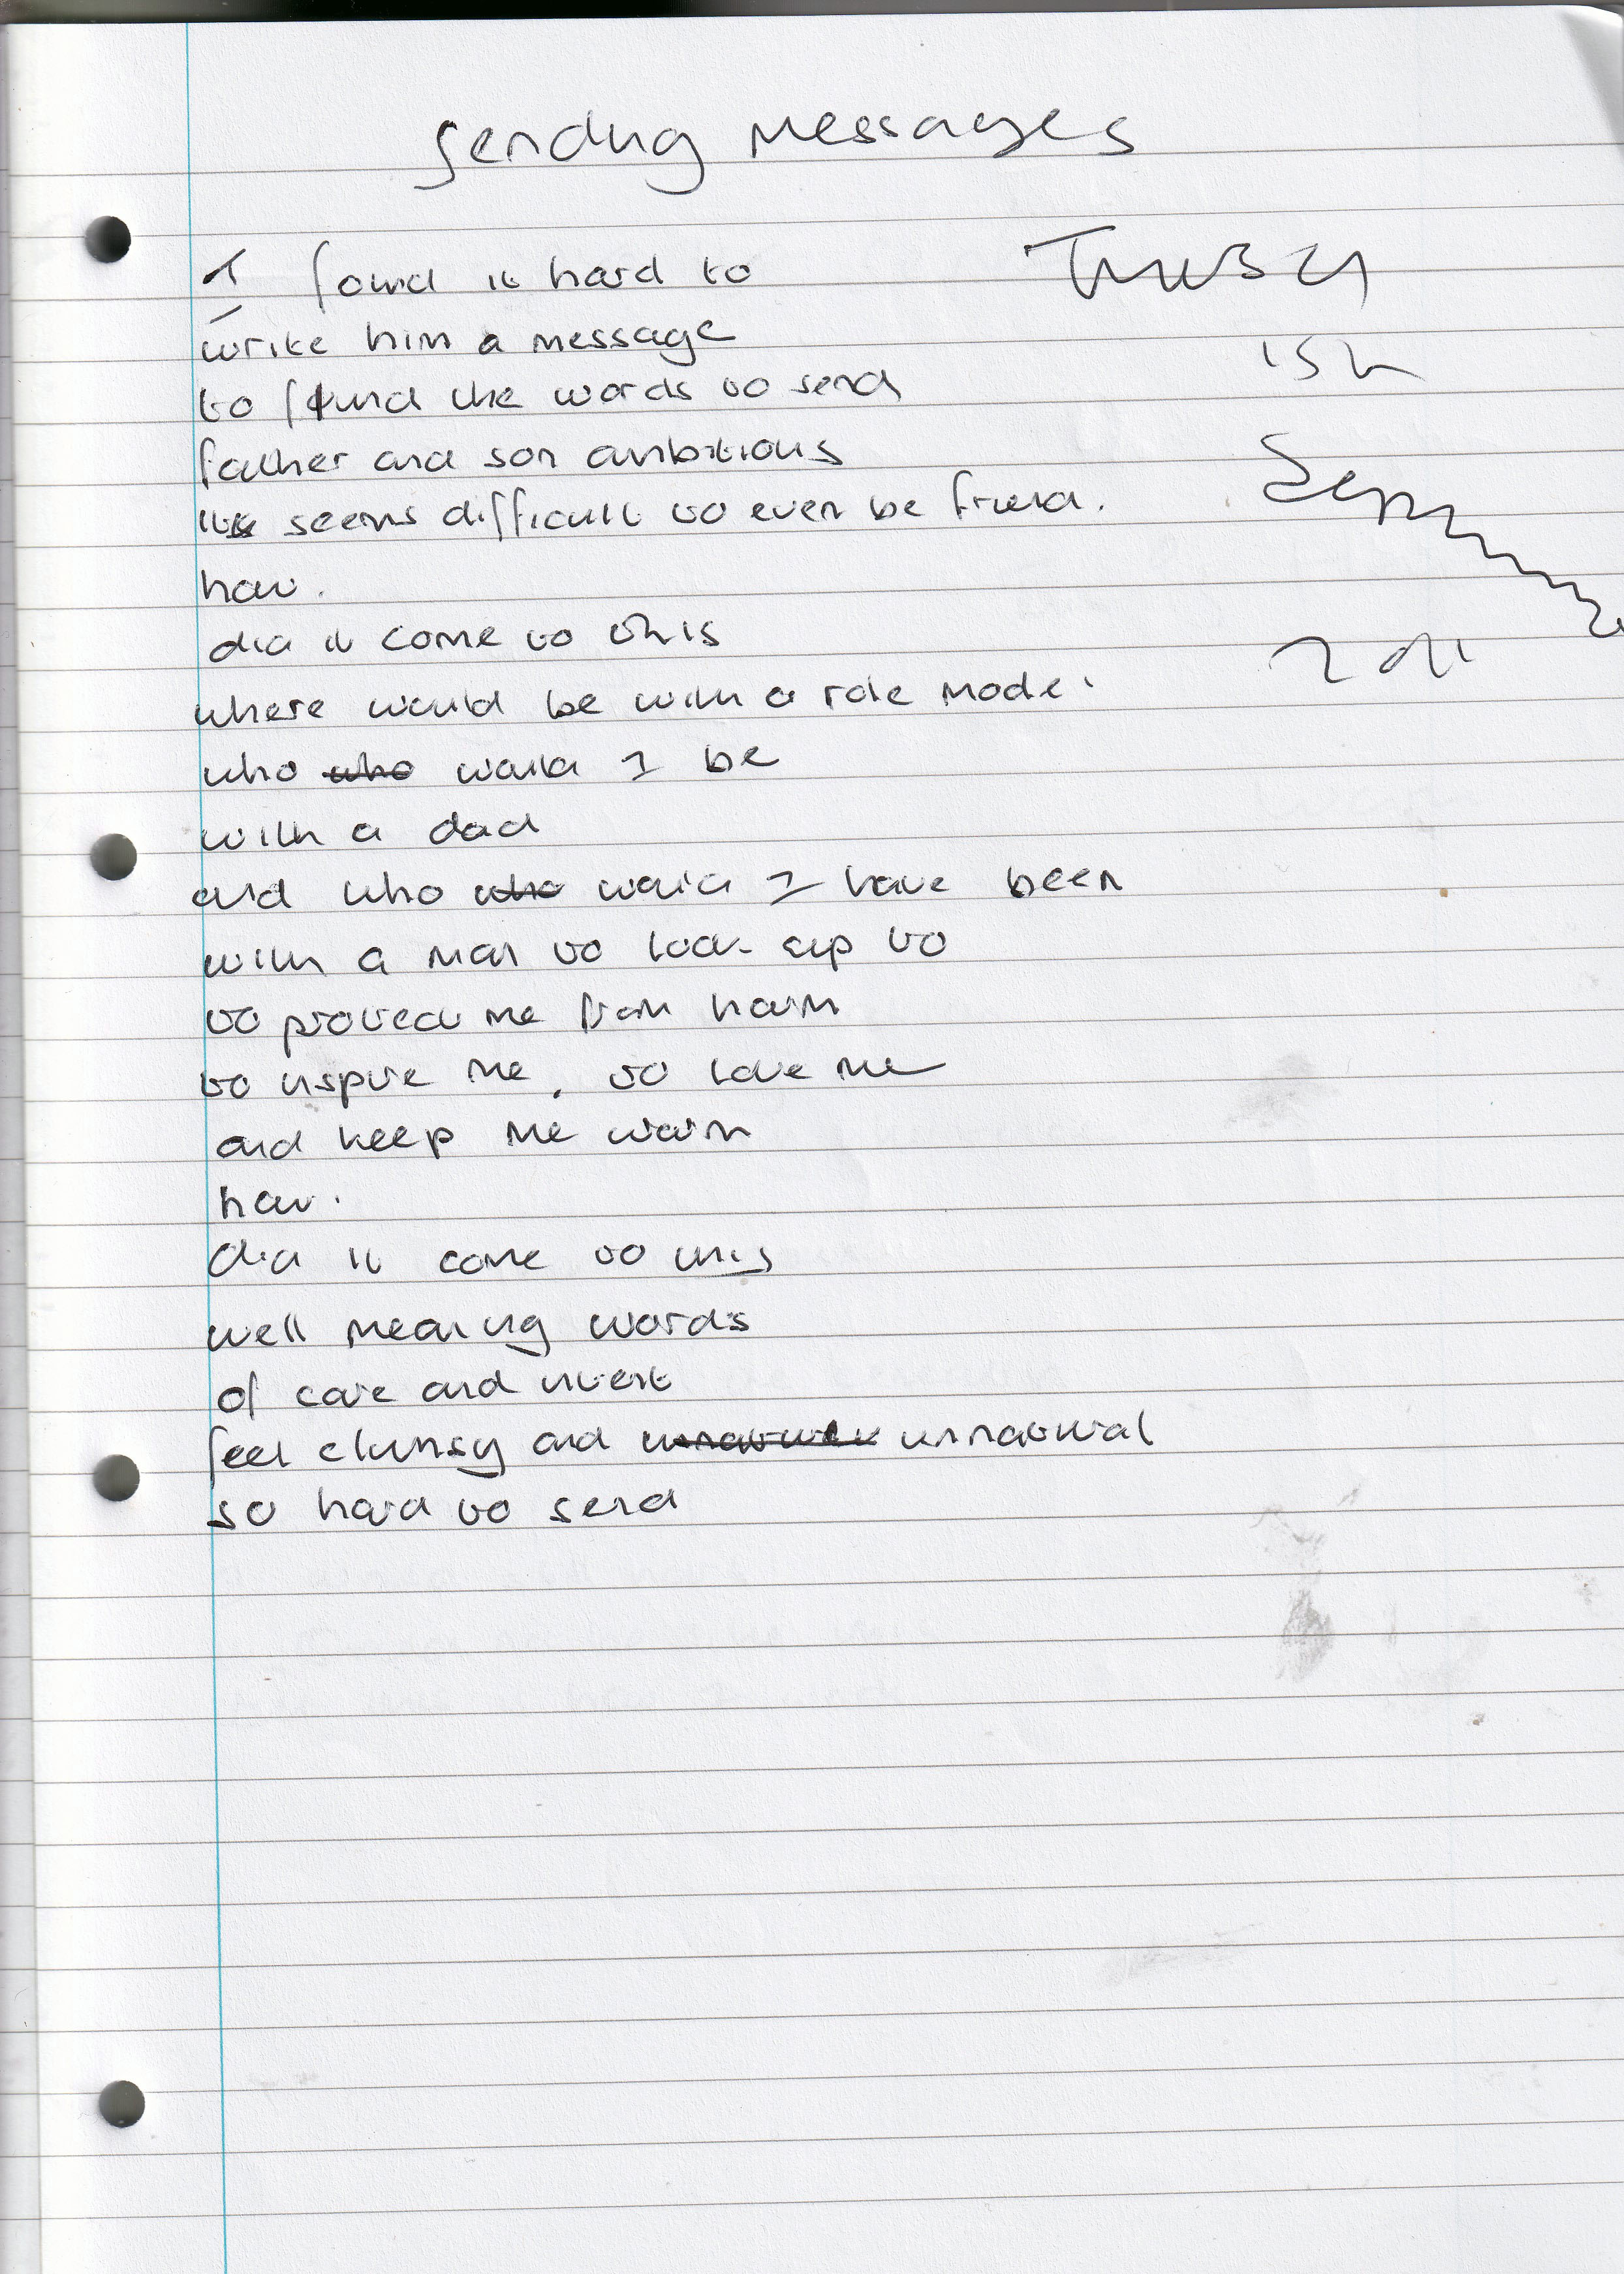 Sending Messages
I found it hard to
write him a message
to find the words to send
father and son ambitions
it seems difficult to even be friend.
how.
did it come to this
where would be with a role model
who who would I be
with a dad
and who who would I have been
with a man to look up to
to protect me from harm
to inspire me, to love me
and keep me warm
how.
did it come to this
well meaning words
of care and
feel clumsy and unnatural
so hard to send
15th